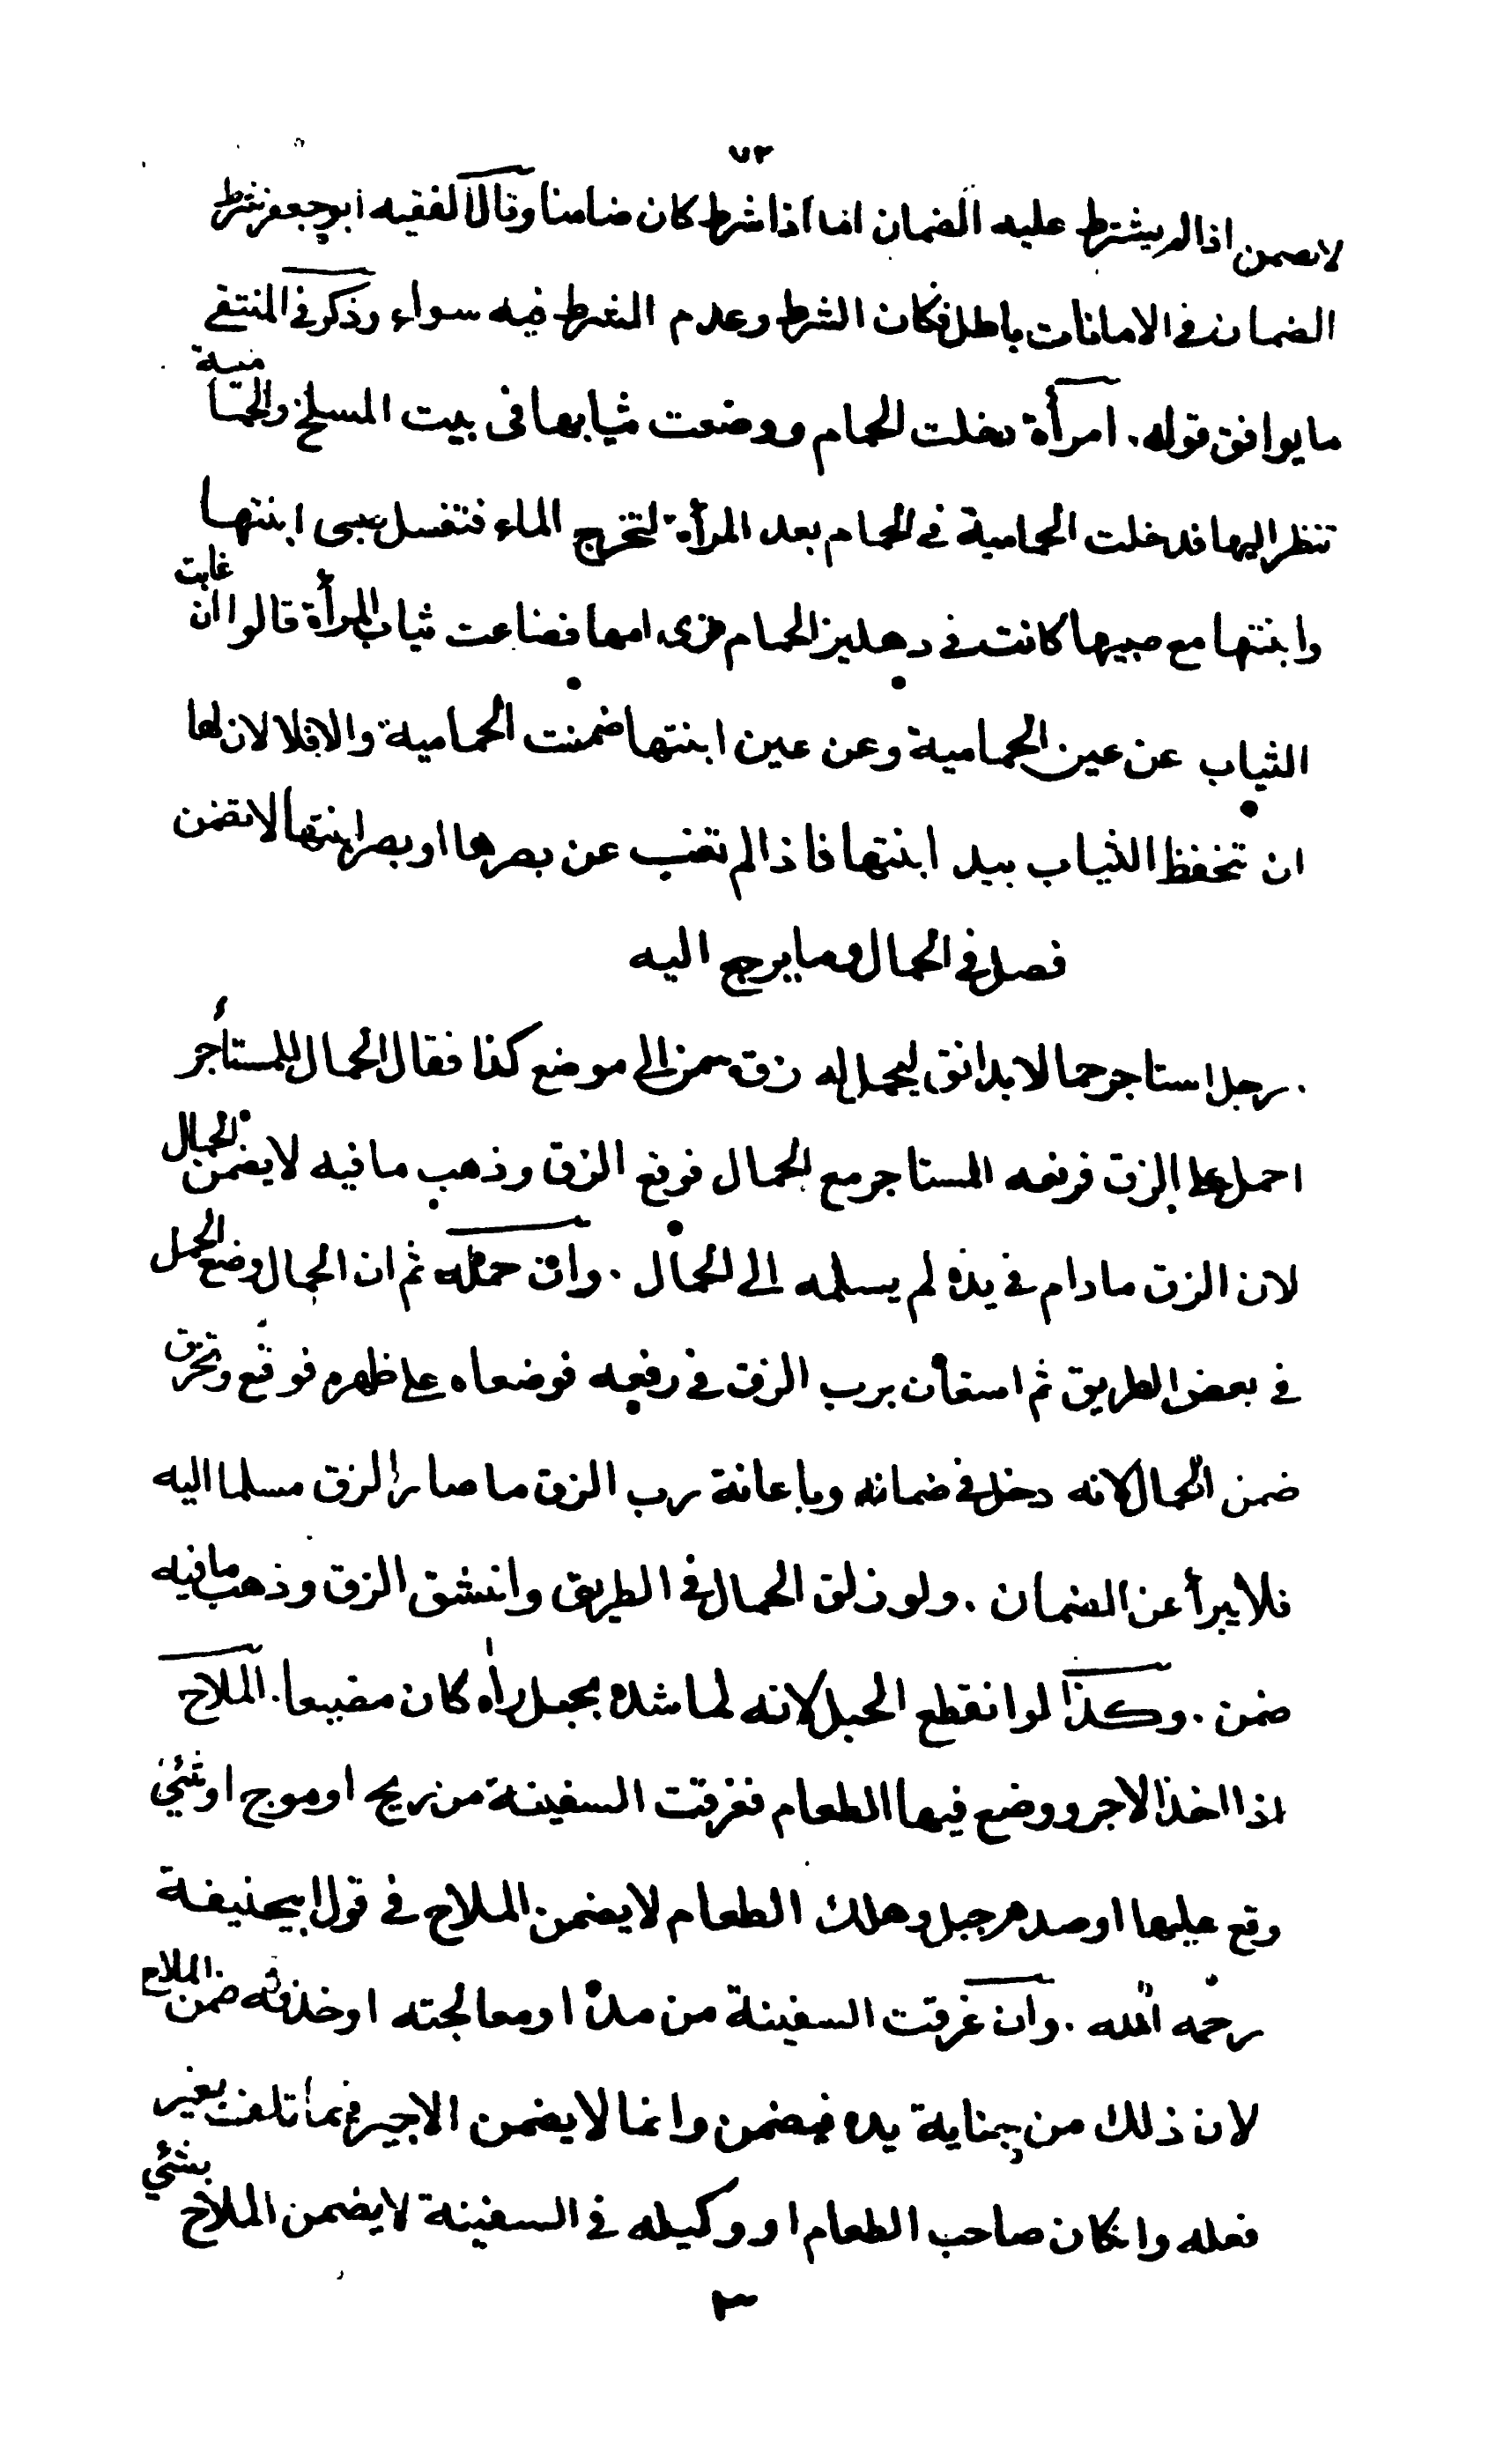 ٧٢
لا يضمن اذا لم يشترط عليه الضمان اما اذا شرط كان ضامنا وقال الفقيه ابو جعفر شرط
الضمان في الامانات باطل فكان الشرط وعدم الشرط فيه سواء وذكر في المنتقى
ما يوافق قوله . امرأة دخلت الحمام ووضعت ثيابها فى بيت المسلخ والحمامية
تنظر اليها فدخلت الحمامية في الحمام بعد المرأة لتخرج الماء فتغسل صبى ابنتها
وابنتها مع صبيها كانت في دهليز الحمام ترى امها فضاعت ثياب المرأة قالوا ان غابت
الثياب عن عين الحمامية وعن عين ابنتها ضمنت الحمامية والا فلا لان لها
ان تحفظ الثياب بيد ابنتها فاذا لم تغب عن بصرها او بصر ابنتها لا تضمن
فصل في الحمال وما يرجع اليه
. رجل استاجر حمالا بدانق ليحمل له زق سمن الى موضع كذا فقال الحمال للمستأجر
احمل على الزق فرفعه المستاجر مع الحمال فوقع الزق وذهب ما فيه لا يضمن الحمال
لان الزق مادام في يده لم يسلمه الى الحمال . وان حمله ثم ان الحمال وضع الحمل
في بعض الطريق ثم استعان برب الزق في رفعه فوضعاه على ظهره فوقع وتخرق
ضمن الحمال لانه دخل في ضمانه وباعانة رب الزق ما صار الزق مسلما اليه
فلا يبرأ عن الضمان . ولو زلق الحمال في الطريق وانشق الزق وذهب ما فيه
ضمن . وكذا لو انقطع الحبل لانه لما شده بحبل راه كان مضيعا . الملاح
اذا اخذ الاجر ووضع فيها الطعام فغرقت السفينة من ريح او موج او شئ
وقع عليها او صدم جبل وهلك الطعام لا يضمن الملاح في قول ابيحنيفة
رحمه الله . وان غرقت السفينة من مده او معالجته او خذفه ضمن الملاح
لان ذلك من جناية يده فيضمن وانما لا يضمن الاجير فيما تلف بغير
فعله وان كان صاحب الطعام او وكيله في السفينة لا يضمن الملاح بشئ